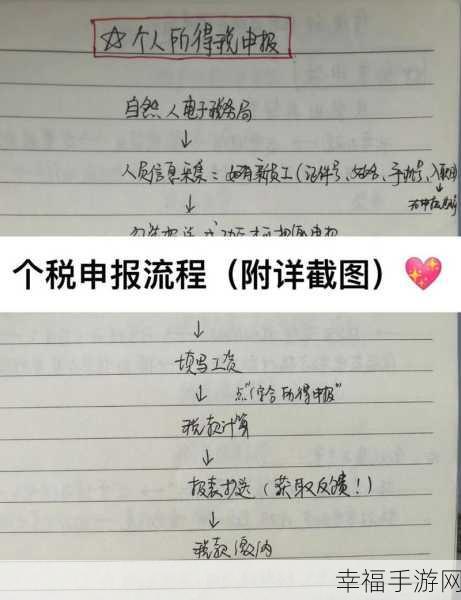 ☆个人所得税申报
自然人电子税务局
↓
人员信息采集：如有新员工（证件号、姓名、手机号、入职时
↓
个税申报流程（附详截图）💖
↓
填写工资
↓ 点“综合所得申报”
税款计算
↓
报表报送（获取反馈！）
↓
税款缴纳
幸福手游网